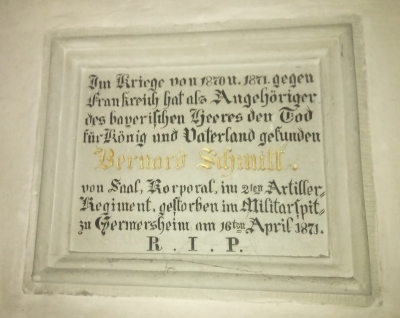 Im Kriege von 1870 u. 1871. gegen
Frankreich hat als Angehöriger
des bayerischen Heeres den Tod
für König und Vaterland gefunden
Bernard Schmitt.
von Saal, Korporal, im 2ten Artiller-
Regiment, gestorben im Militärspit-
zu Germersheim am 16ten April 1871.
R. I. P.